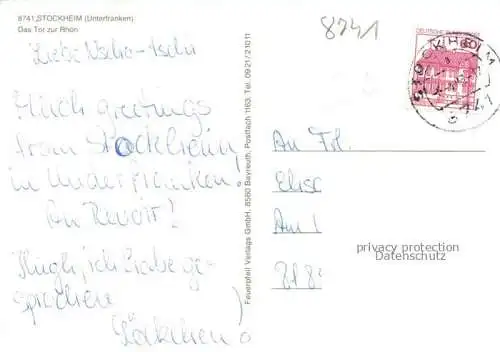 8741 STOCKHEIM (Unterfranken)
Das Tor zur Rhön
8741
DEUTSCHE BUNDESPOST
60
STOCKHEIM
Liebe Nscho-tschi
Much greetings
from Stockheim
in Underfranken.
Au Revoir!
Hugh, ich habe ge-
sprochen
Feuerpfeil Verlags GmbH, 8580 Bayreuth, Postfach 1163, Tel. 0921/21011
An Frl.
Elise
Am
privacy protection
Datenschutz